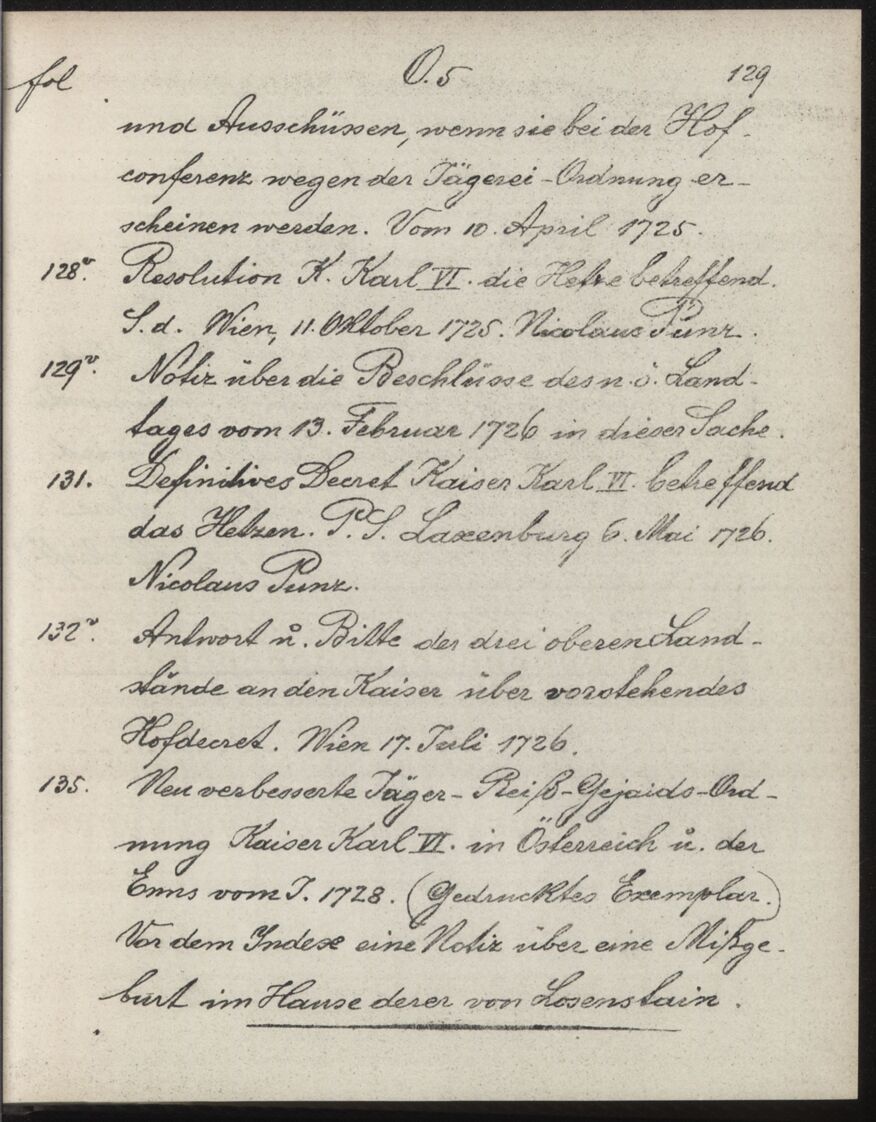 fol O. 5 129
und Ausschüssen, wenn sie bei der Hof-
conferenz wegen der Jägerei-Ordnung er-
scheinen werden. Vom 10. April 1725.
128v. Resolution K. Karl VI. die Hetze betreffend.
S. d. Wien, 11. Oktober 1725. Nicolaus Punz.
129v. Notiz über die Beschlüsse des n. ö. Land-
tages vom 13. Februar 1726 in dieser Sache.
131. Definitives Decret Kaiser Karl VI. betreffend
das Hetzen. P. S. Laxenburg 6. Mai 1726.
Nicolaus Punz.
132v. Antwort u. Bitte der drei oberen Land-
stände an den Kaiser über vorstehendes
Hofdecret. Wien 17. Juli 1726.
135. Neu verbesserte Jäger- Reiß-Gejaids-Ord-
nung Kaiser Karl VI. in Österreich u. der
Enns vom J. 1728. (Gedrucktes Exemplar.)
Vor dem Indexe eine Notiz über eine Mißge-
burt im Hause derer von Losenstain.